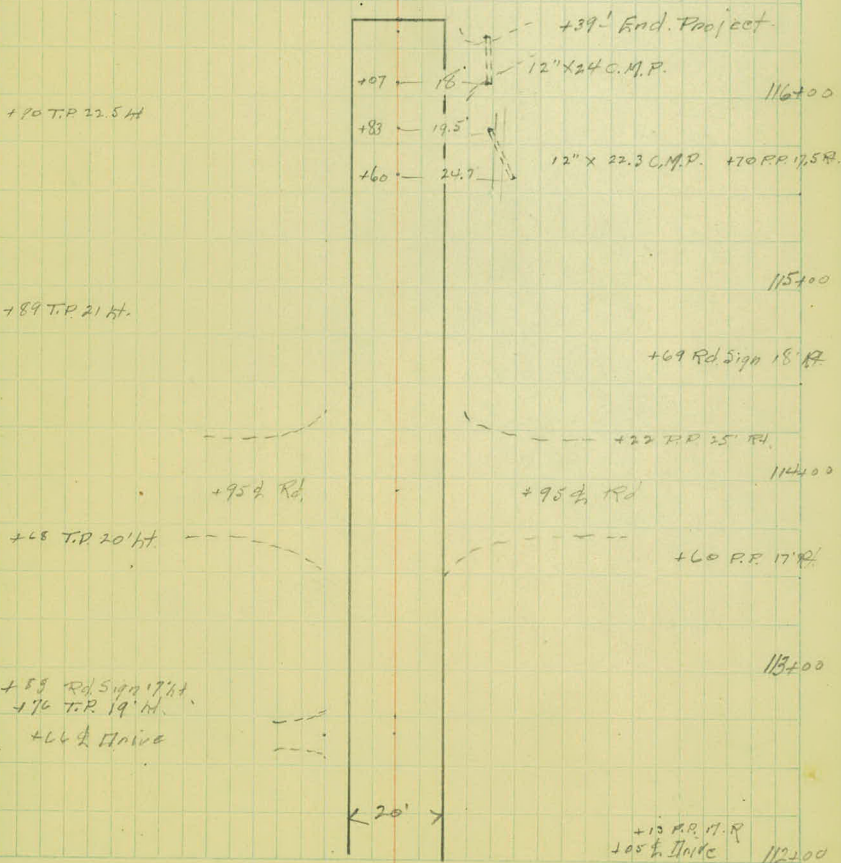 +39' End. Project
12" X 24 C.M.P.
+07 18'
116+00
+90 T.P. 22.5 Lt
+83 19.5'
12" X 22.3 C.M.P. +70 P.P. 17.5 Rt.
+60 24.7
115+00
+89 T.P. 21 Lt.
+69 Rd. Sign 18' Rt.
+22 P.P. 25' Rt.
114+00
+95 ℄ Rd.
+95 ℄ Rd
+68 T.P. 20' Lt.
+60 P.P. 17' Rt.
113+00
Rd. Sign 17' Lt
+76 T.P. 19' Lt.
+66 ℄ Drive
20'
+13 P.P. 17. R
+05 ℄ Drive
112+00